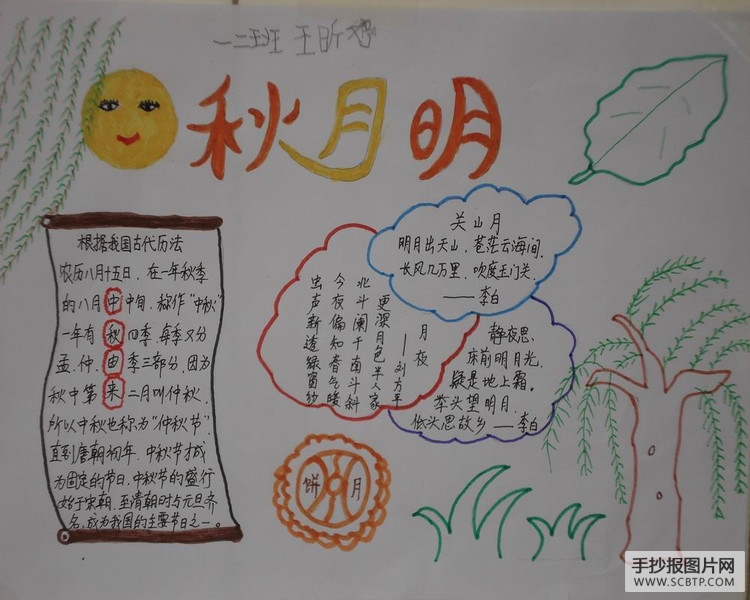 一二班 王昕
秋月明
根据我国古代历法
农历八月十五日，在一年秋季
的八月中中旬，称作“中秋”
一年有秋四季，每季又分
孟、仲、由季三部分，因为
秋中第来二月叫仲秋，
所以中秋也称为“仲秋节”
直到唐朝初年，中秋节才成
为固定的节日，中秋节的盛行
始于宋朝，至清朝时与元旦齐
名，成为我国的主要节日之一。
关山月
明月出天山，苍茫云海间，
长风几万里，吹度玉门关。
——李白
月夜
——刘方平
更深月色半人家
北斗阑干南斗斜
今夜偏知春气暖
虫声新透绿窗纱
静夜思，
床前明月光，
疑是地上霜。
举头望明月，
低头思故乡——李白
月饼
手抄报图片网
WWW.SCBTP.COM